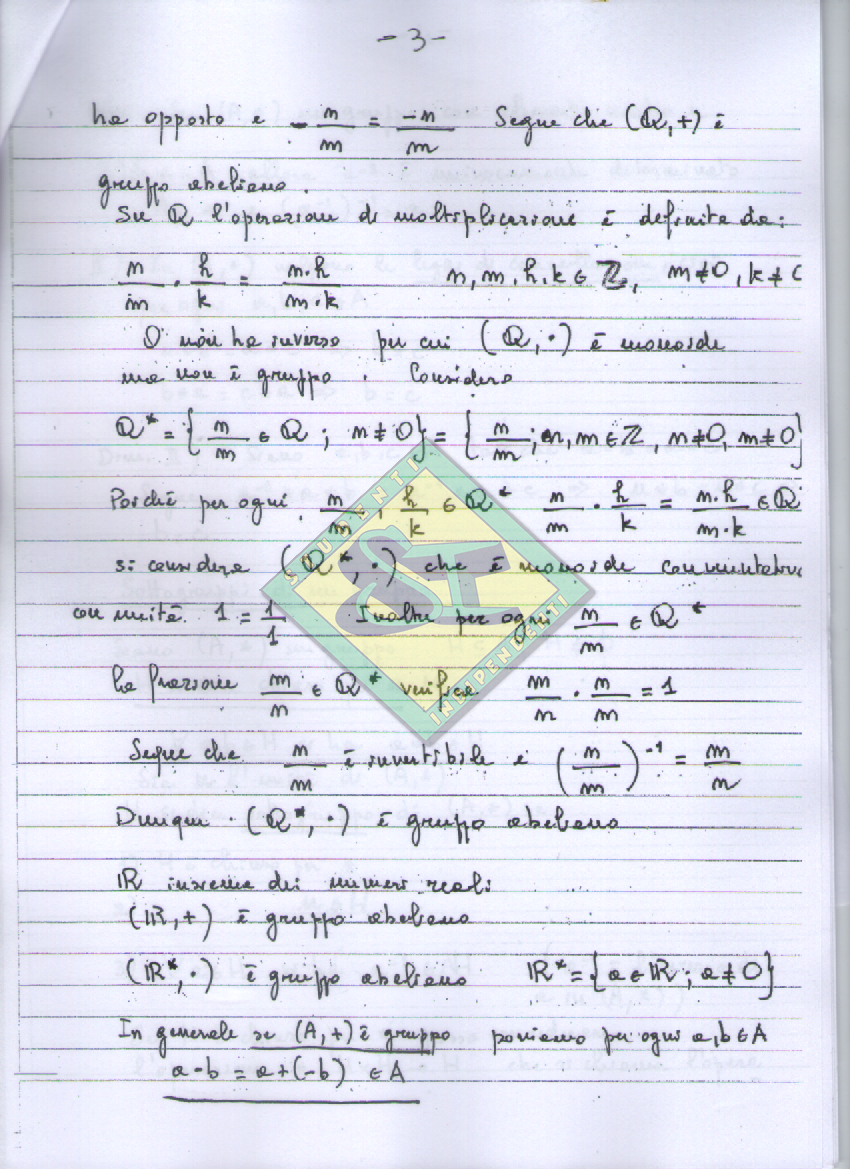 - 3 -
ha opposto e - n/m = -n/m Segue che (Q, +) è
gruppo abeliano.
Su Q l'operazione di moltiplicazione è definita da:
n/m · h/k = n·h/m·k n, m, h, k ∈ Z, m ≠ 0, k ≠ 0
0 non ha inverso per cui (Q, ·) è monoide
ma non è gruppo. Considero
Q* = { n/m ∈ Q ; n ≠ 0 } = { n/m ; n, m ∈ Z, n ≠ 0, m ≠ 0 }
Poichè per ogni n/m, h/k ∈ Q* n/m · h/k = n·h/m·k ∈ Q*
si considera (Q*, ·) che è monoide commutativo
con unità 1 = 1/1 Inoltre per ogni n/m ∈ Q*
la frazione m/n ∈ Q* verifica m/n · n/m = 1
Segue che n/m è invertibile e (n/m)⁻¹ = m/n
Dunque (Q*, ·) è gruppo abeliano
ℝ insieme dei numeri reali
(ℝ, +) è gruppo abeliano
(ℝ*, ·) è gruppo abeliano ℝ* = { a ∈ ℝ ; a ≠ 0 }
In generale se (A, +) è gruppo poniamo per ogni a, b ∈ A
a - b = a + (-b) ∈ A
STUDENTI
INDIPENDENTI